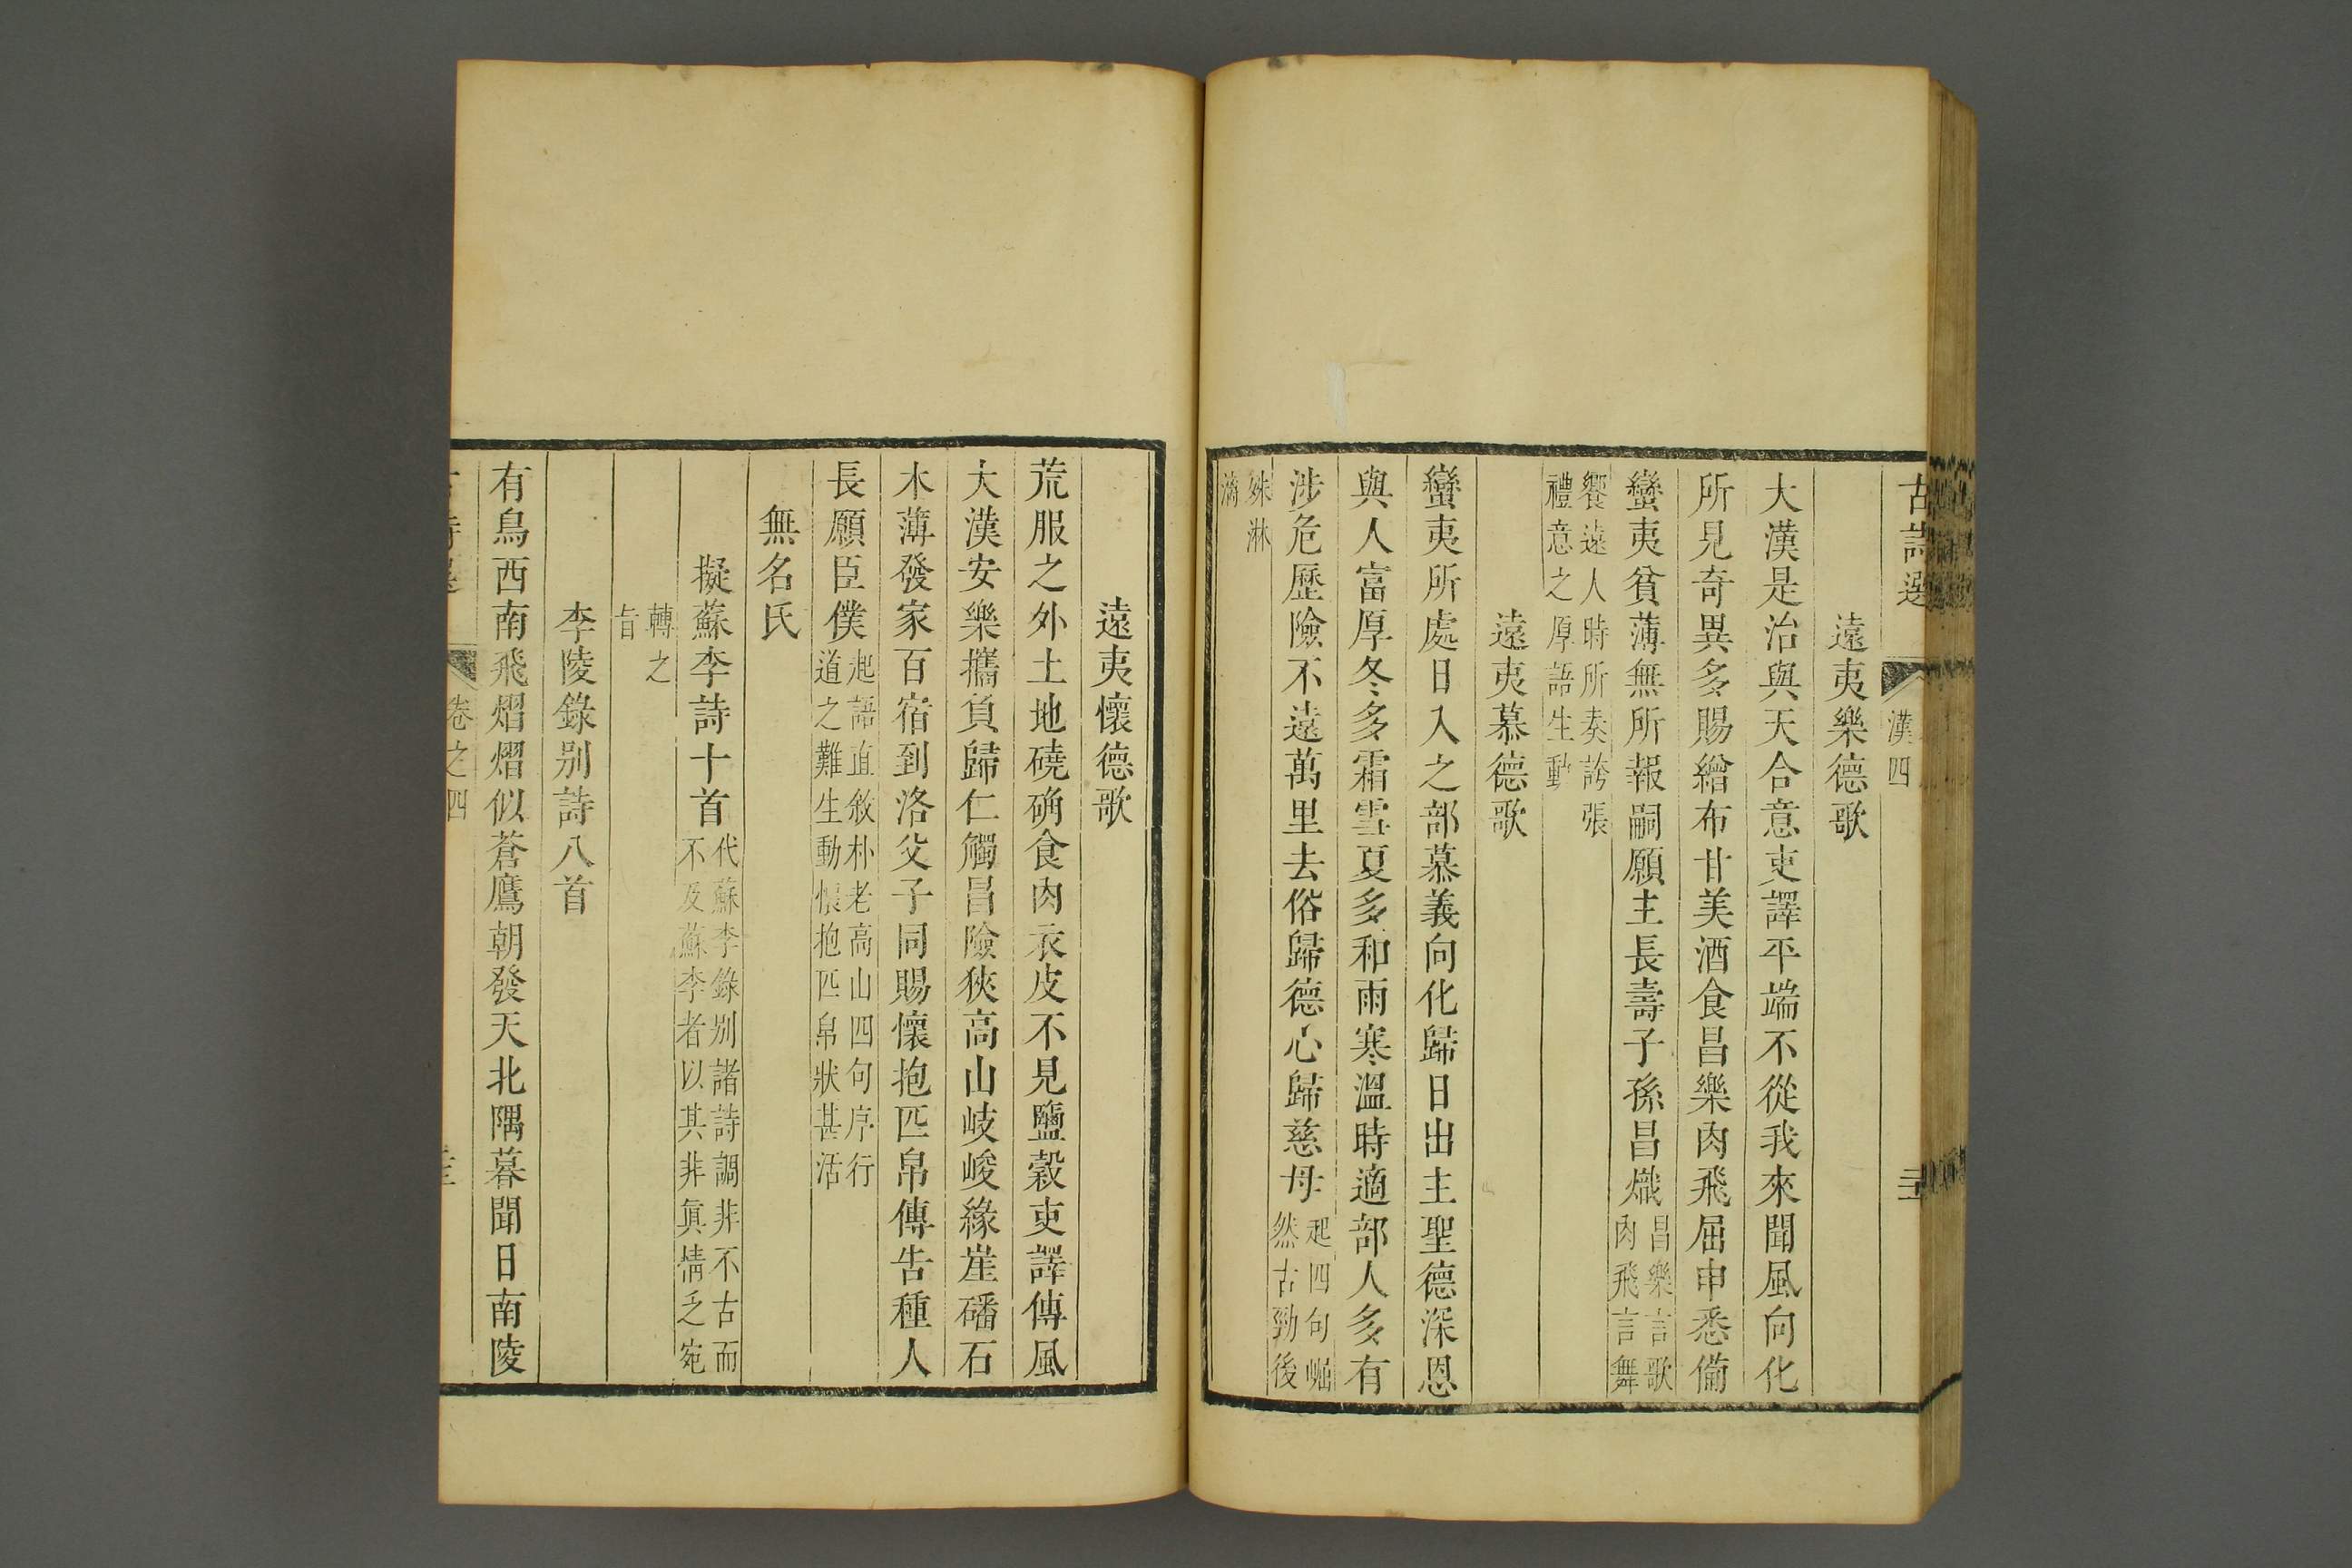 古詩選 漢四
遠夷樂德歌
大漢是治與天合意吏譯平端不從我來聞風向化
所見奇異多賜繒布甘美酒食昌樂肉飛屈申悉備
蠻夷貧薄無所報嗣願主長壽子孫昌熾昌樂言歌肉飛言舞
饗遠人時所奏誇張禮意之厚語生動
遠夷慕德歌
蠻夷所處日入之部慕義向化歸日出主聖德深恩
與人富厚冬多霜雪夏多和雨寒溫時適部人多有
涉危歷險不遠萬里去俗歸德心歸慈母起四句崛然古勁後
姝淋漓
遠夷懷德歌
荒服之外土地磽确食肉衣皮不見鹽穀吏譯傳風
大漢安樂攜負歸仁觸冒險狹高山岐峻緣崖磻石
木薄發家百宿到洛父子同賜懷抱匹帛傳告種人
長願臣僕起語直敘朴老高山四句序行道之難生動懷抱匹帛狀甚活
無名氏
擬蘇李詩十首代蘇李錄別諸詩調非不古而不及蘇李者以其非眞情乏宛
轉之旨
李陵錄別詩八首
有鳥西南飛熠熠似蒼鷹朝發天北隅暮聞日南陵
卷之四